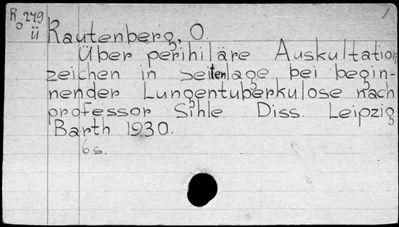 R 249 Rautenberg, O.
o
ü
Über perihiläre Auskultation
zeichen in Seitenlage bei begin-
nender Lungentuberkulose nach
professor Sihle. Diss. Leipzig
Barth 1930.
6 s.